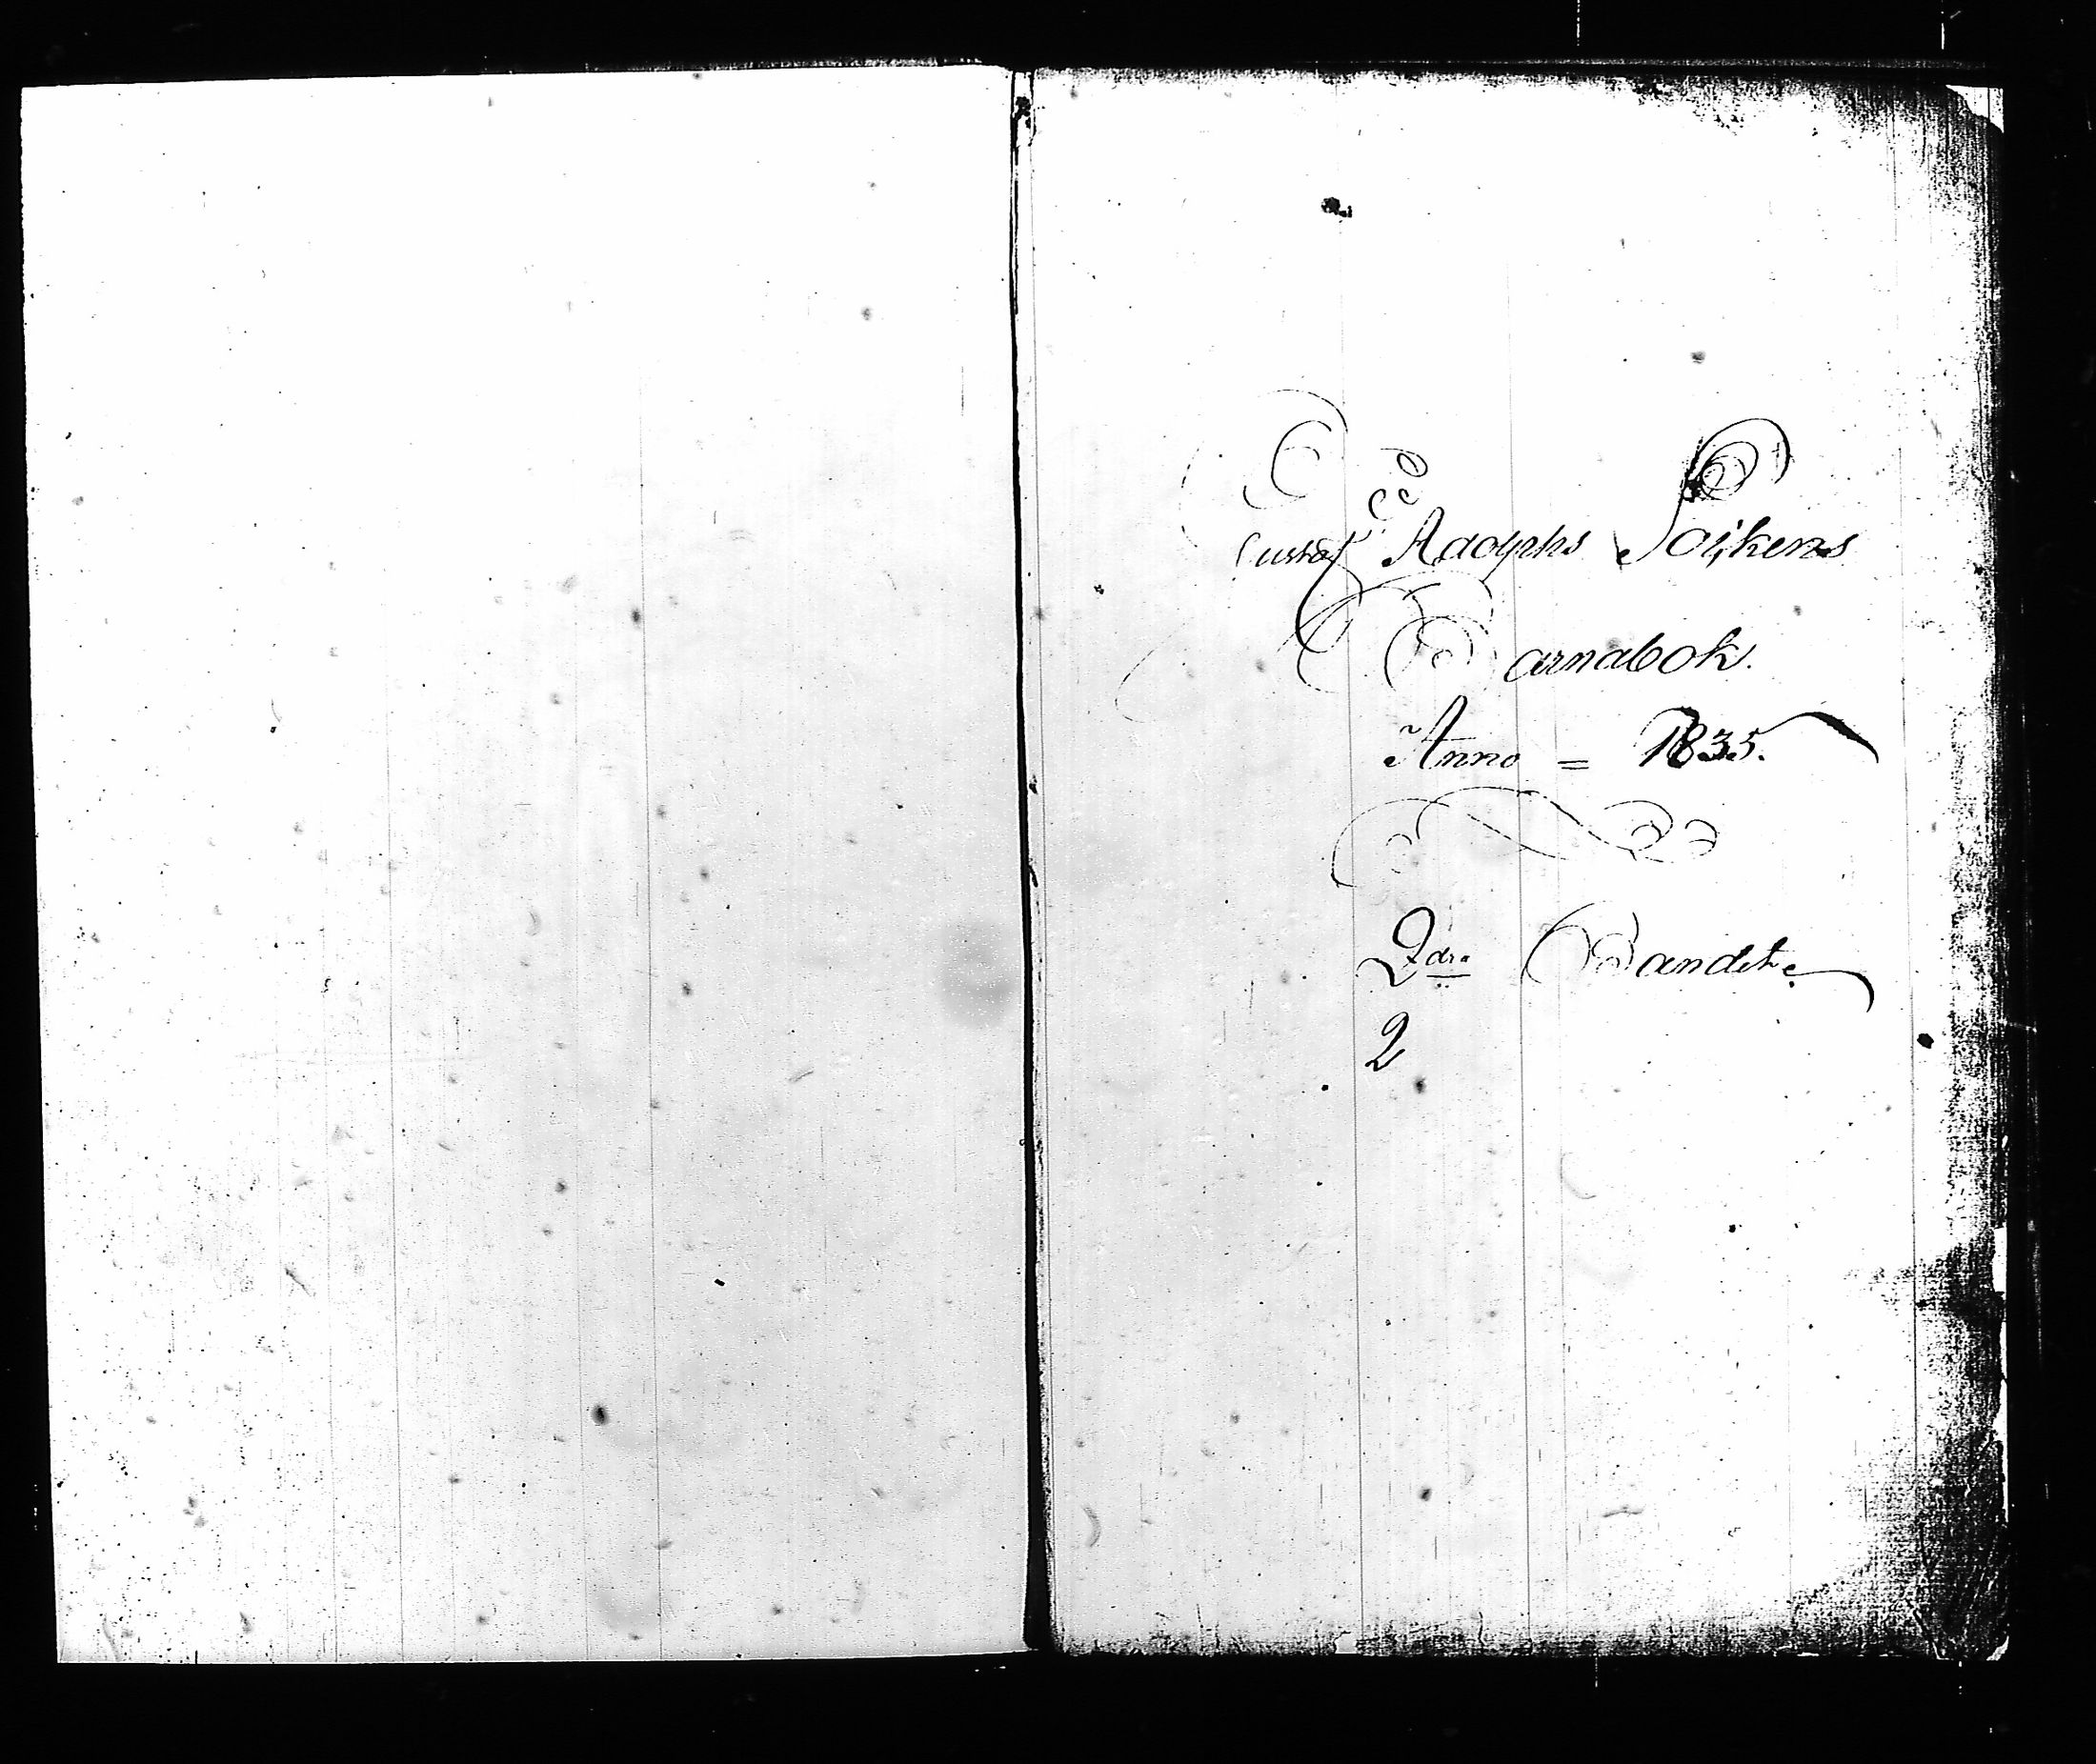 Gustaf Adolphs Sokens
Barnabok.
Anno = 1835.
2dra Bandet.
2